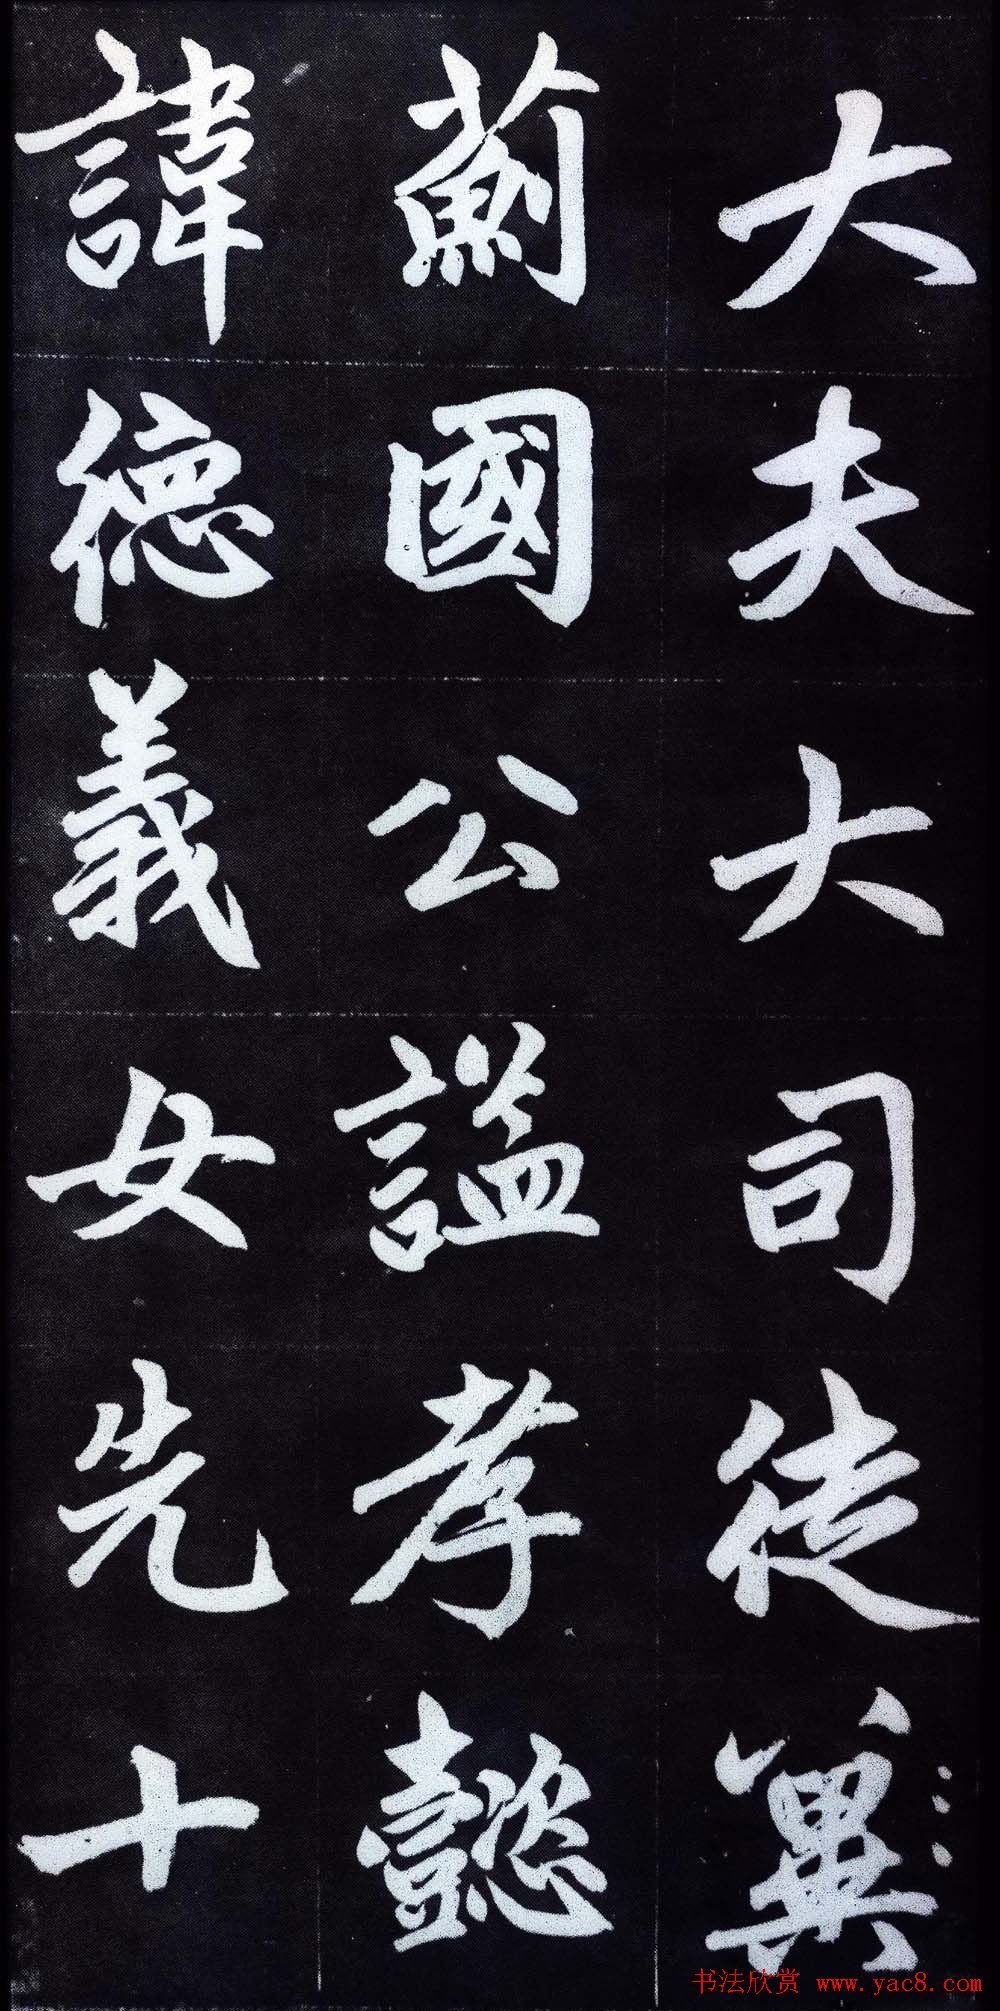 大夫大司徒冀
薊國公謚孝懿
諱德義女先十
书法欣赏 www.yac8.com